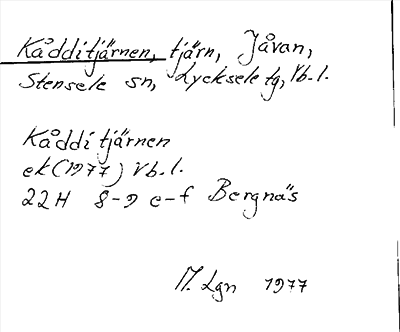 Kådditjärnen, tjärn, Jåvan,
Stensele sn, Lycksele tg, Vb.l.
Kådditjärnen
ek (1977) Vb.l.
22H 8-9 e-f Bergnäs
M. Lgn 1977